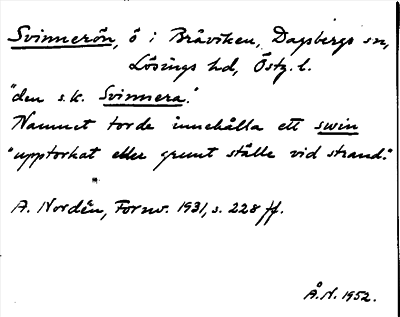 Svinnerön, ö i Bråviken, Dagsbergs sn,
Lösings hd, Östg. l.
"den s.k. Svinnera."
Namnet torde innehålla ett swin
"upptorkat eller grunt ställe vid strand."
A. Nordén, Fornv. 1931, s. 228 ff.
Å.N. 1952.